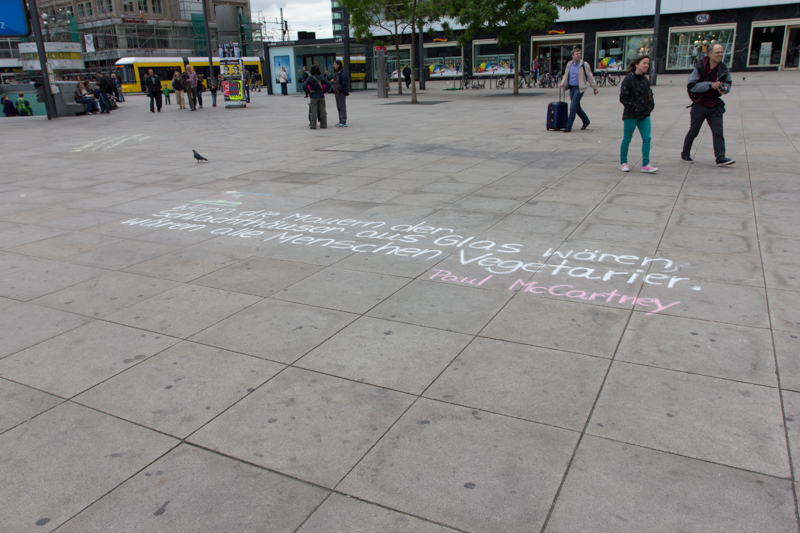 die Mauern der
Schlachthäuser aus Glas wären,
wären alle Menschen Vegetarier.
Paul McCartney